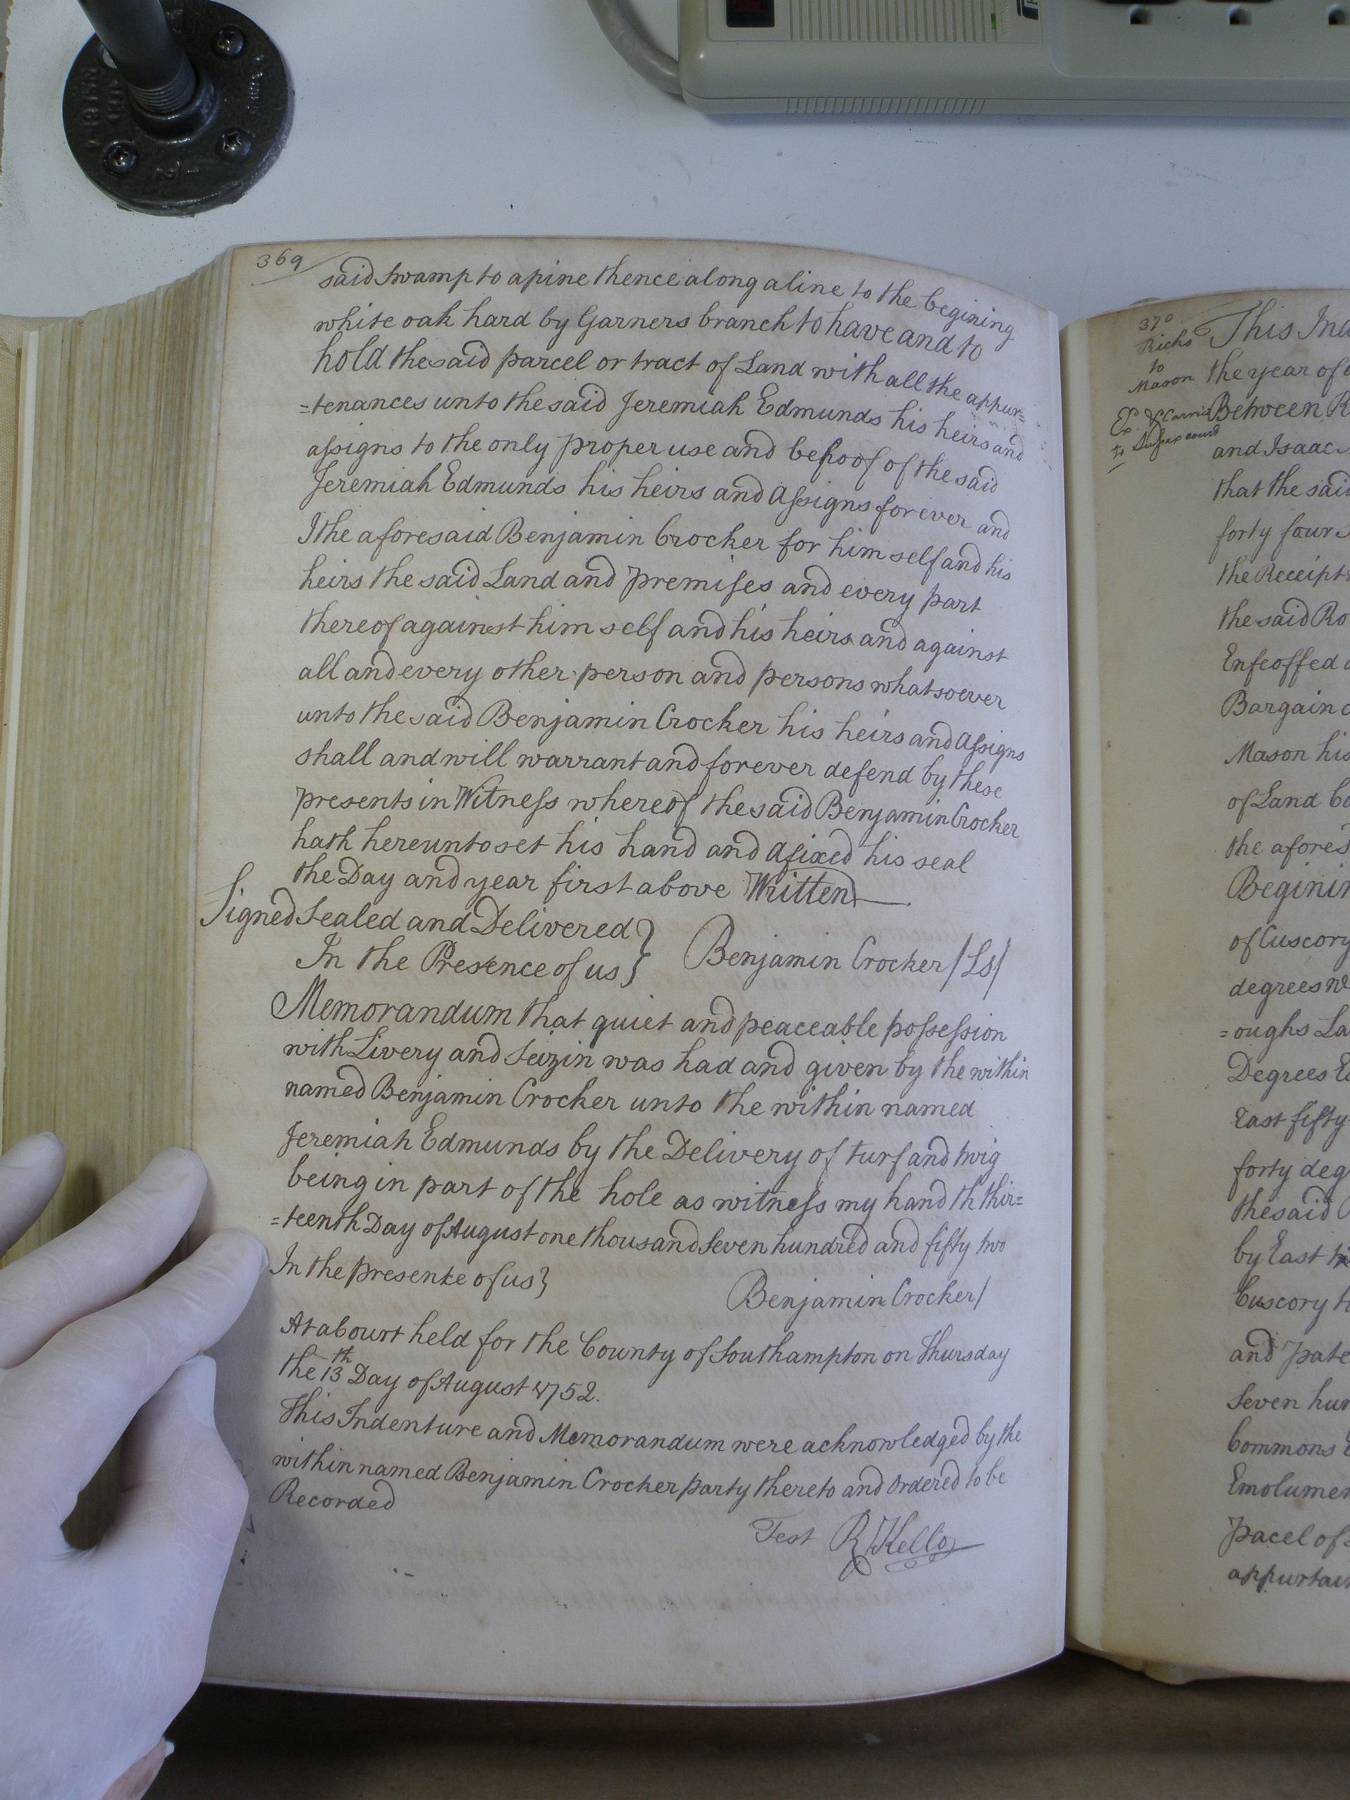 369
said swamp to a pine thence along a line to the begining
white oak hard by Garners branch to have and to
hold the said parcel or tract of Land with all the appur=
=tenances unto the said Jeremiah Edmunds his heirs and
assigns to the only proper use and behoof of the said
Jeremiah Edmunds his heirs and Assigns forever and
I the aforesaid Benjamin Crocker for him self and his
heirs the said Land and premises and every part
thereof against him self and his heirs and against
all and every other person and persons whatsoever
unto the said Benjamin Crocker his heirs and Assigns
shall and will warrant and forever defend by these
presents in Witness whereof the said Benjamin Crocker
hath hereunto set his hand and afixed his seal
the Day and year first above Written
Signed Sealed and Delivered }
In the Presence of us } Benjamin Crocker /Ls/
Memorandum that quiet and peaceable possession
with Livery and Seizin was had and given by the within
named Benjamin Crocker unto the within named
Jeremiah Edmunds by the Delivery of turf and twig
being in part of the hole as witness my hand th thir=
=teenth Day of August one thousand Seven hundred and fifty two
In the presente of us }
Benjamin Crocker/
At a bourt held for the County of Southampton on Thursday
the 13th Day of August 1752.
This Indenture and Memorandum were acknowledged by the
within named Benjamin Crocker party thereto and ordered to be
Recorded
Test R Kello
370
Ricks
to
Mason
Ex.
to Sussex
This Ind
the year of
Between R
and Isaac
that the said
forty four
the Receipt
the said Ro
Enfeoffed
Bargain
Mason his
of Land
the afores
Beginin
of Cuscory
degrees
=oughs La
Degrees Ea
East fifty
forty deg
the said
by East
Cuscory
and Pate
Seven hun
Commons
Emolumen
Pacel of
appurtain